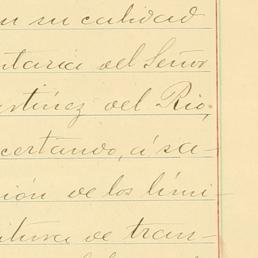 en su calidad
ntaria del Señor
artinez del Rio,
certando, á sa-
ción de los lími
itura de tran-